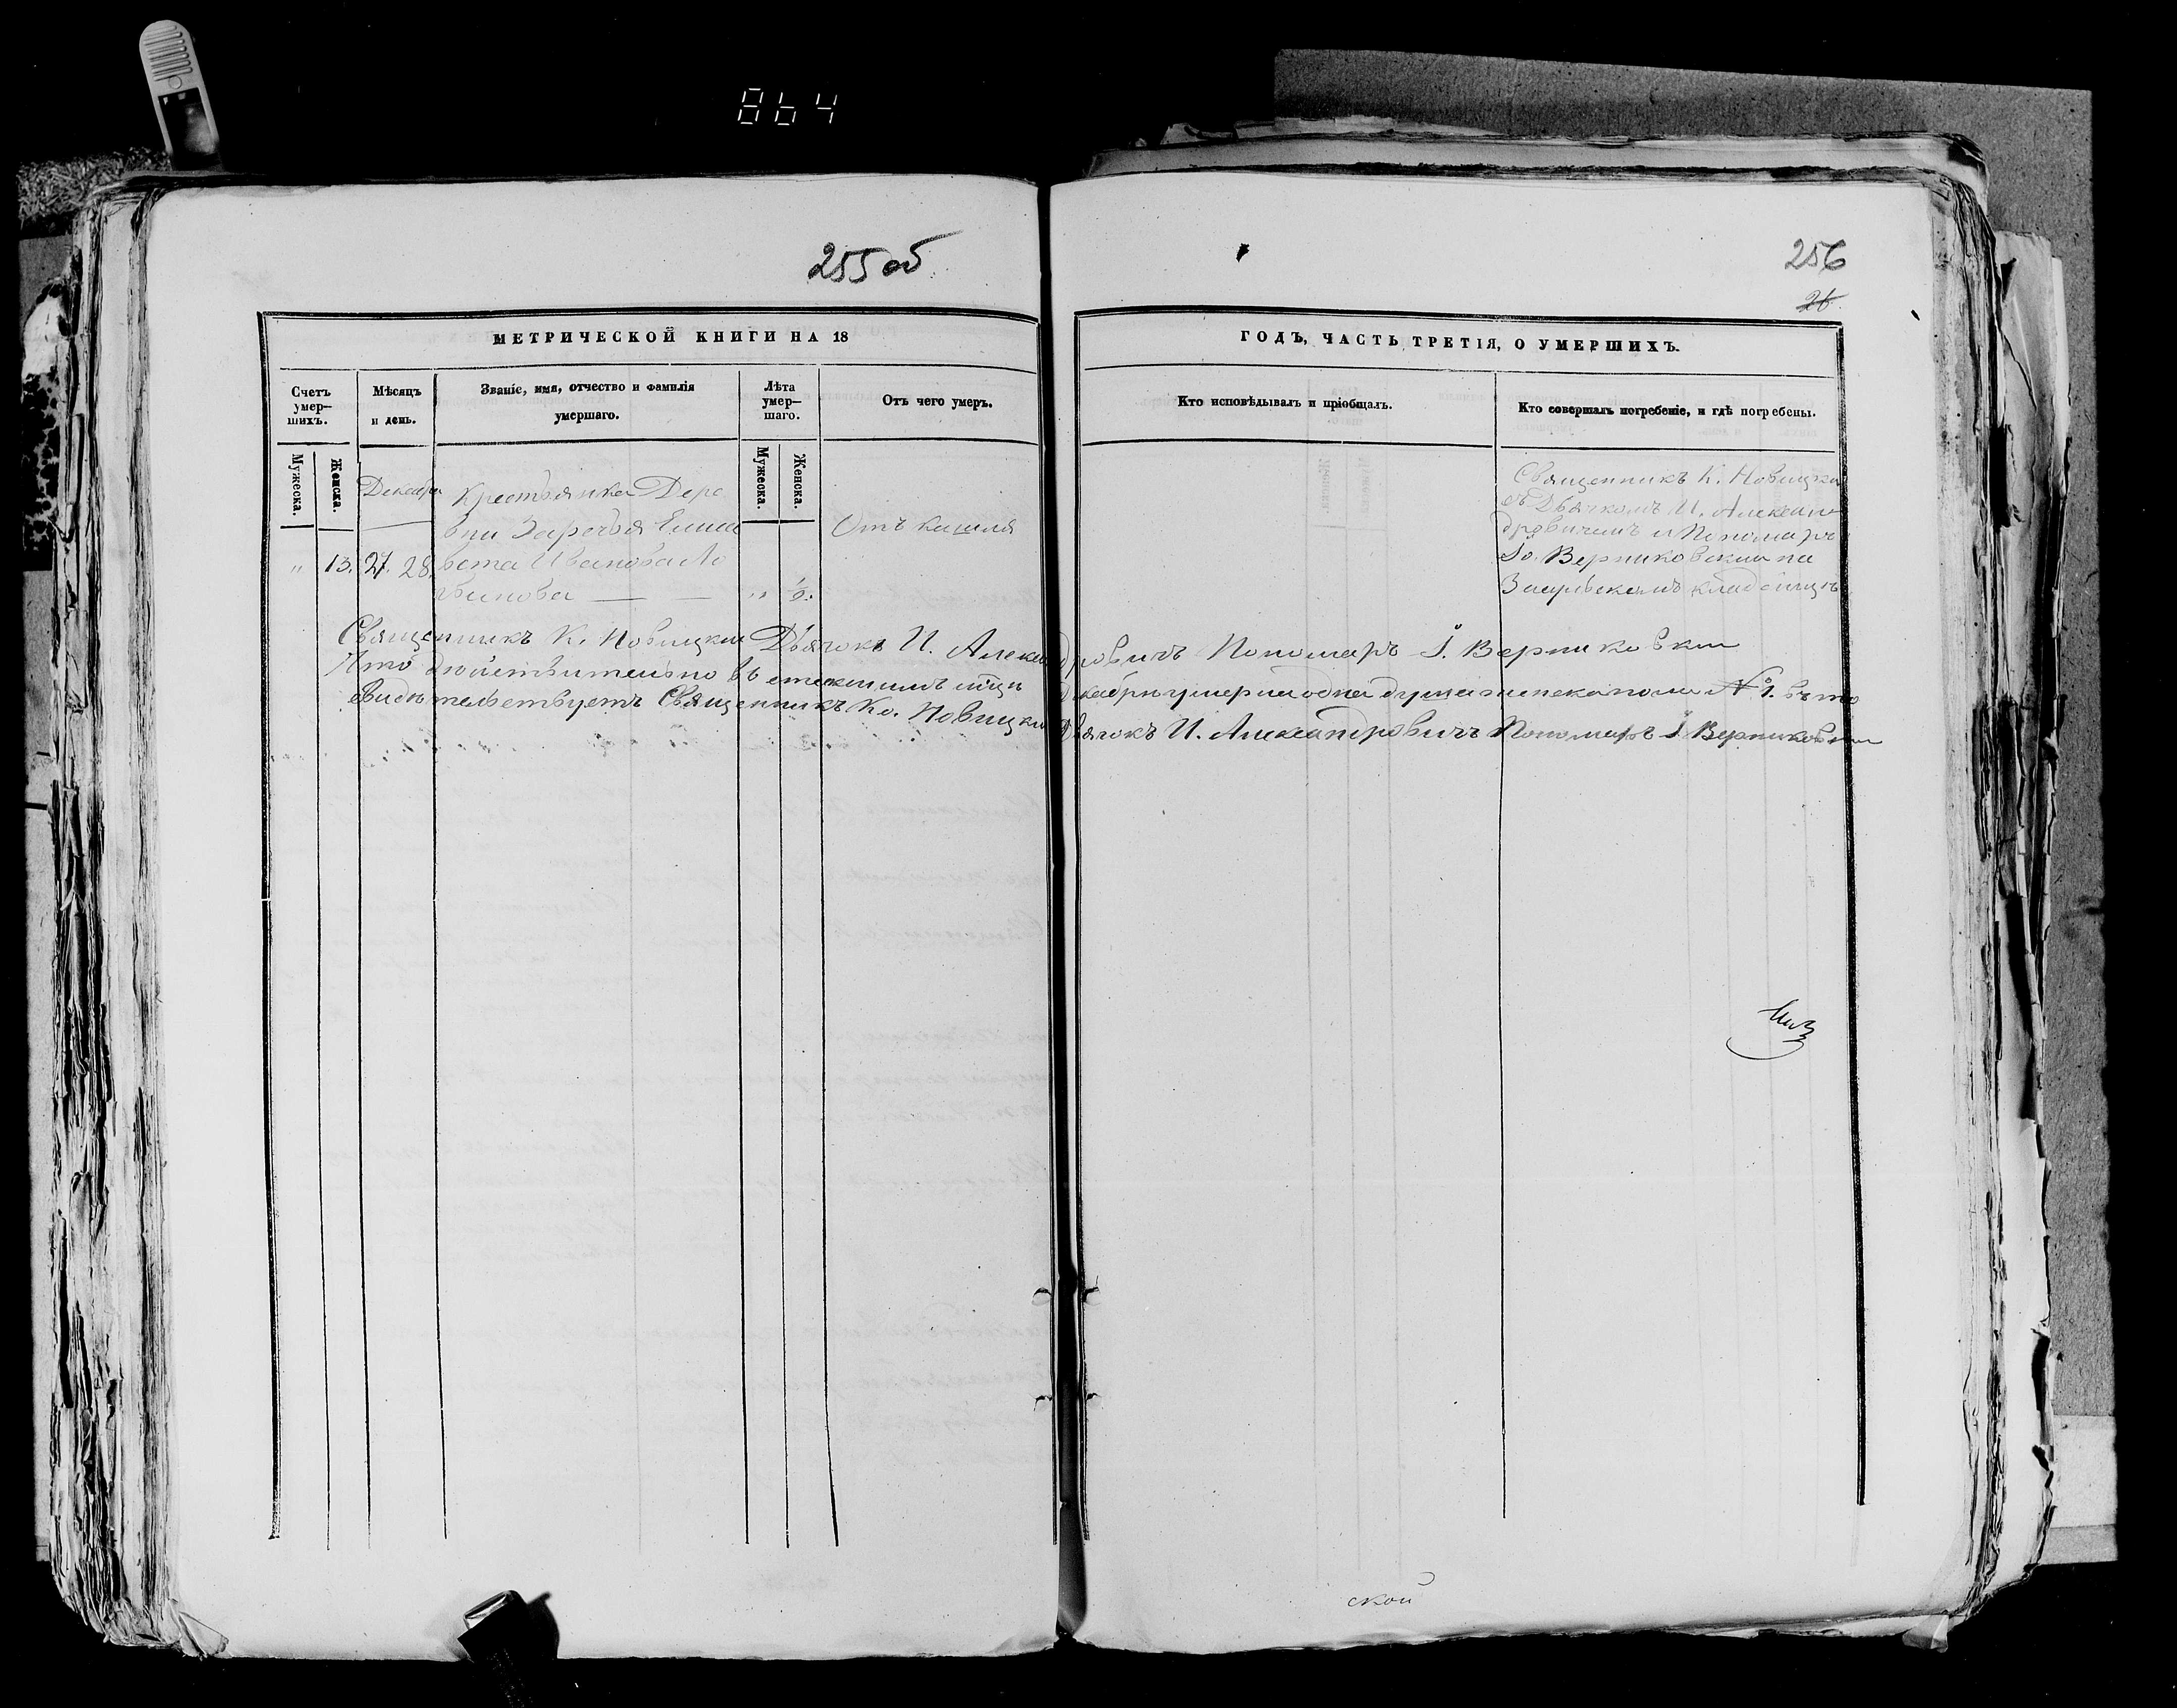 864
255 об
256
26.
МЕТРИЧЕСКОЙ КНИГИ НА 18
ГОДЪ, ЧАСТЬ ТРЕТІЯ, О УМЕРШИХЪ.
Счетъ
умер-
шихъ.
Мѣсяцъ
и день.
Званіе, имя, отчество и фамилія
умершаго.
Лѣта
умер-
шаго.
Отъ чего умеръ.
Кто исповѣдывалъ и пріобщалъ.
Кто совершалъ погребеніе, и гдѣ погребены.
Мужеска.
Женска.
Мужеска.
Женска.
Декабря
Крестьянка Дере
вни Заречья Елиса
вета Иванова
" 13. 27. 28.
Отъ кашля
Священникъ К. Новицкій
съ Дьячкомъ И. Алексан
дровичемъ и Пономаръ
Іо. Верниковскій на
кладбищѣ
Священникъ К. Новицкій Дьячокъ И. Александровичъ Пономаръ І. Верниковскій
Что дѣйствительно въ декабрѣ умерла одна душа женска пола № 1. въ томъ
свидѣтельствуетъ Священникъ Ко. Новицкій Дьячокъ И. Александровичъ Пономаръ І. Верниковскій
ской